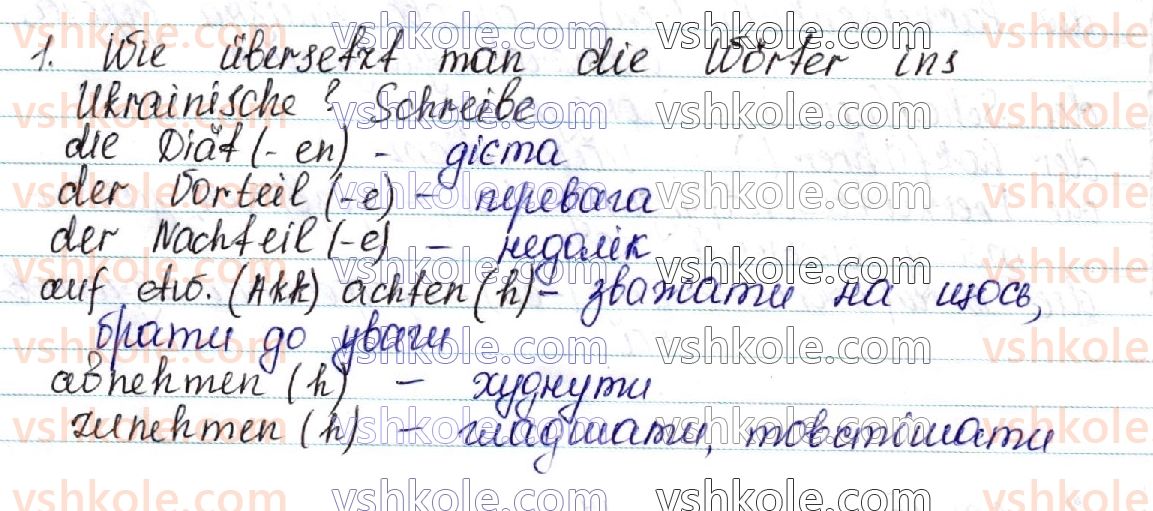 1. Wie übersetzt man die Wörter ins
Ukrainische? Schreibe
die Diät (-en) - дієта
der Vorteil (-e) - перевага
der Nachteil (-e) - недолік
auf etw. (Akk) achten (h) - зважати на щось,
брати до уваги
abnehmen (h) - худнути
zunehmen (h) - гладшати, товстішати